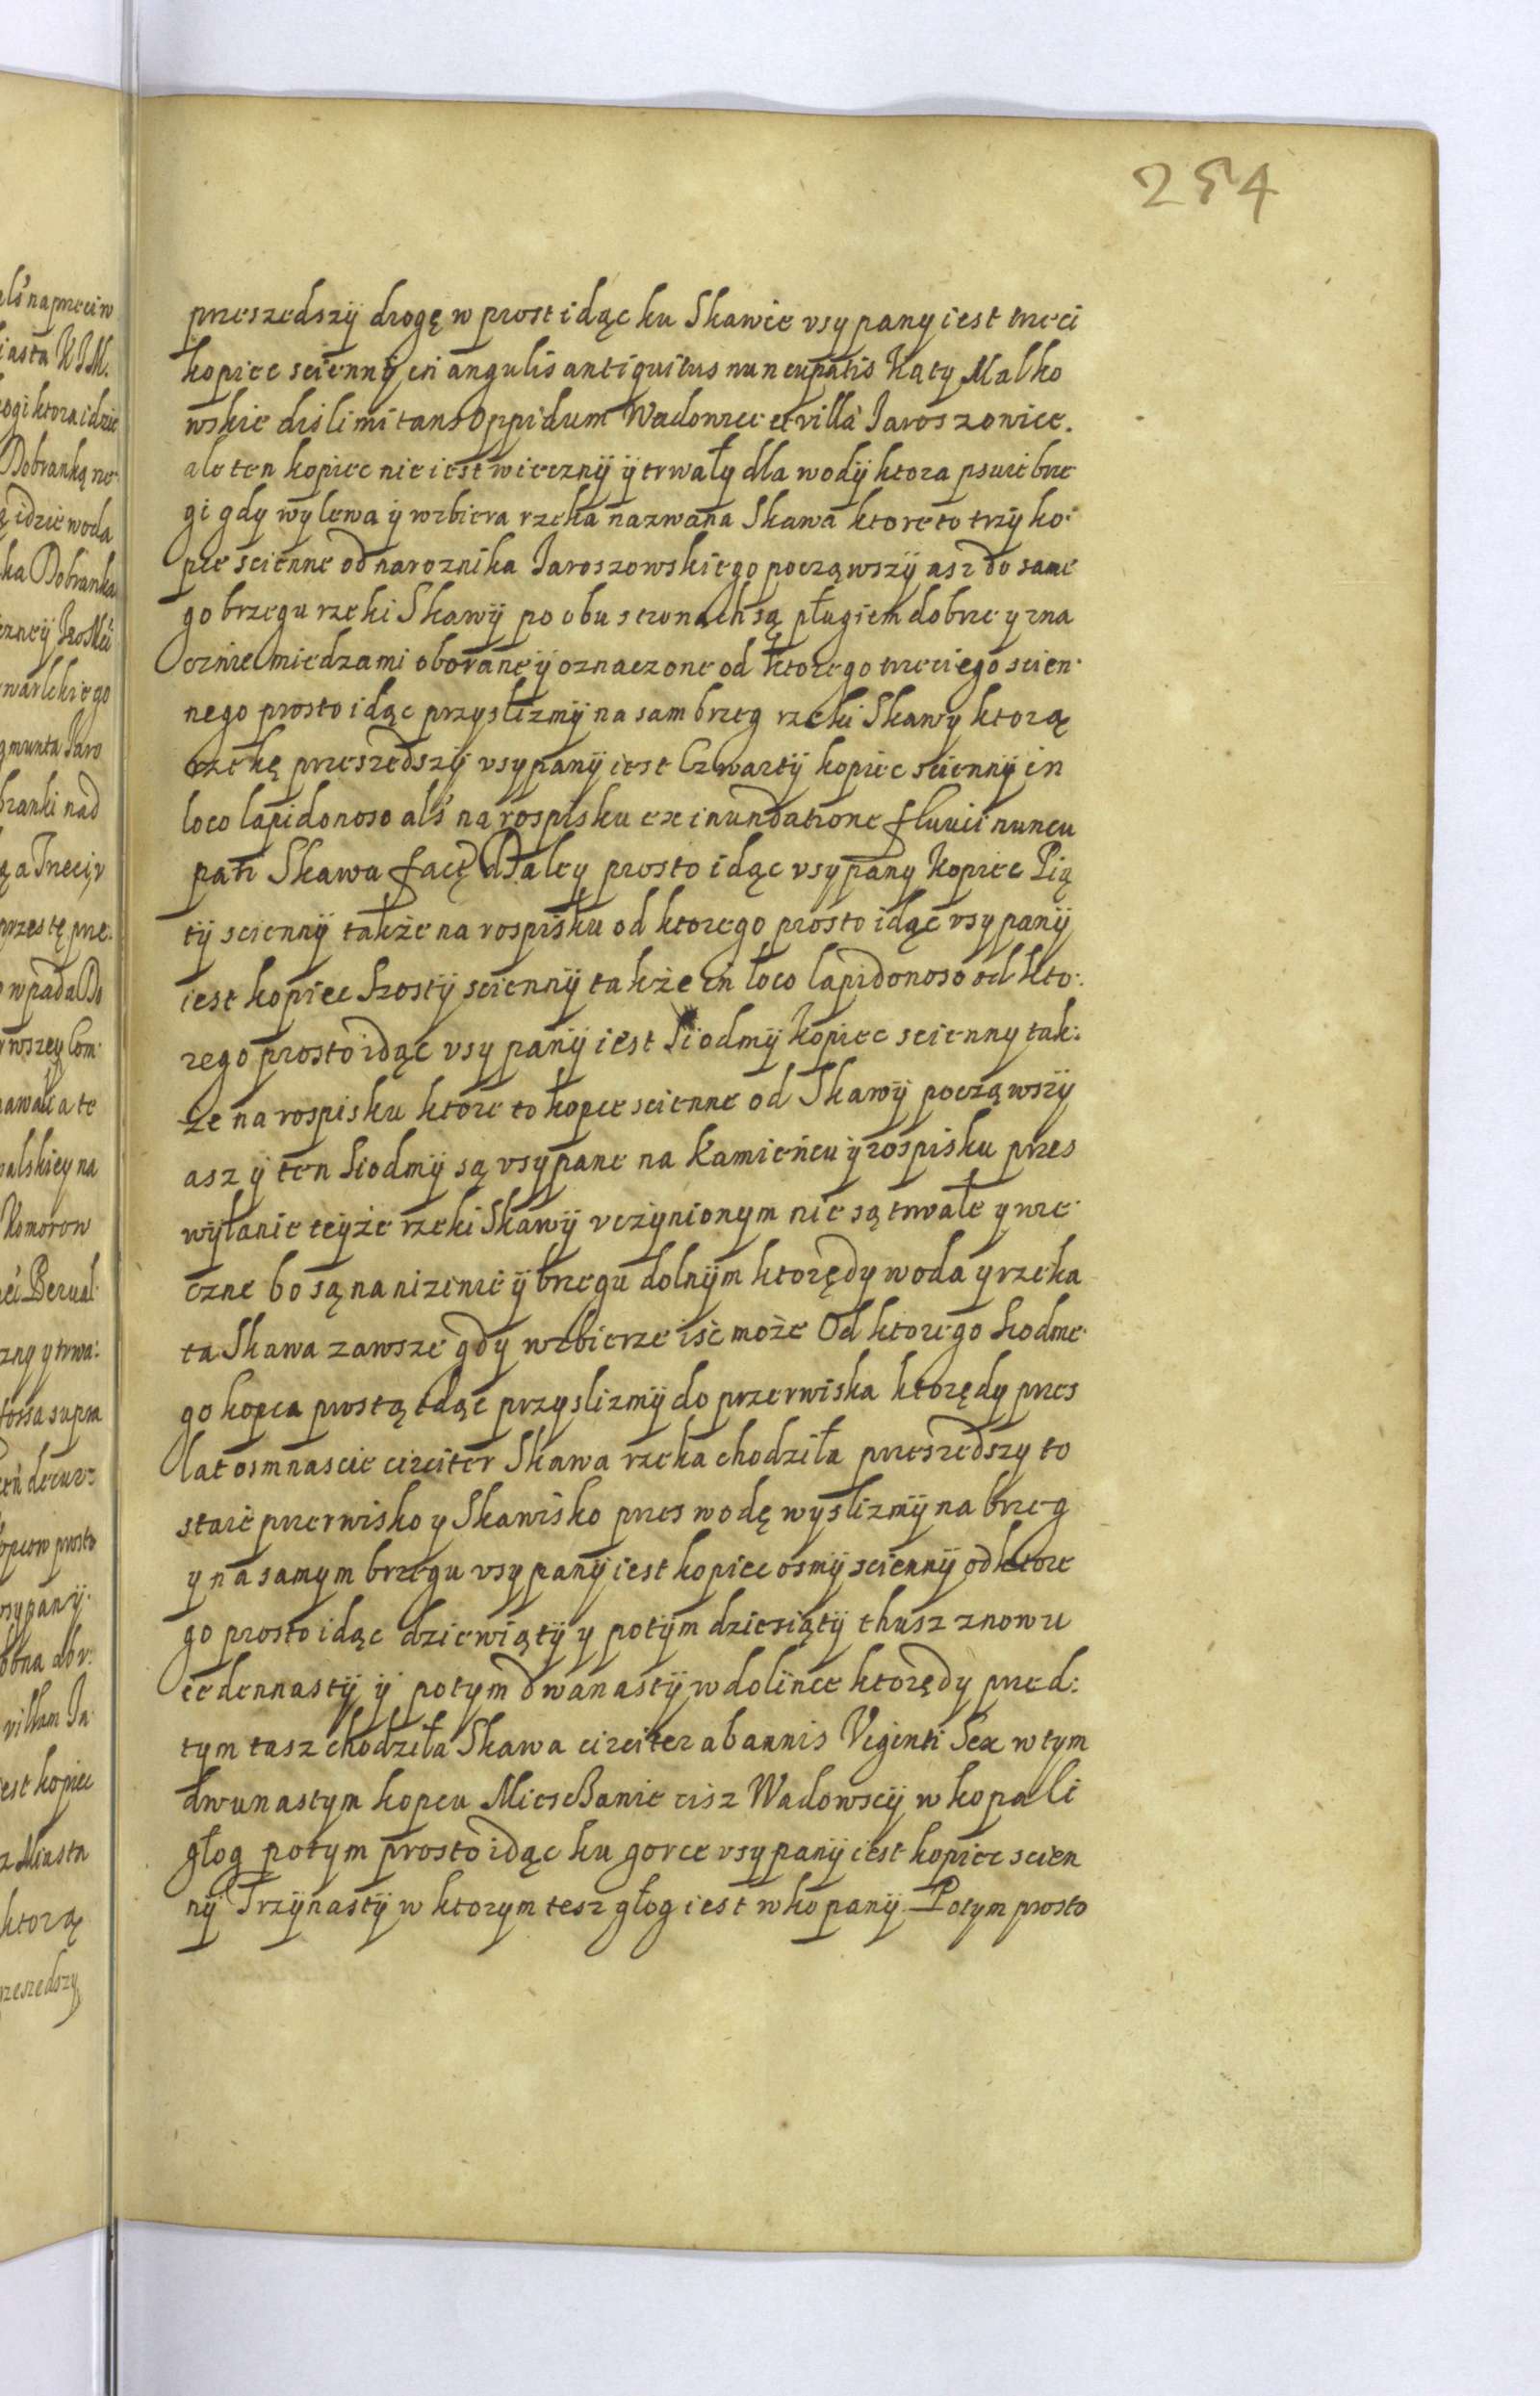 254
als na preciw
iasta KJM.
rogi ktora idzie
Dobranką rze
ą idzie woda
ka Dobranka
warskiego
gmunta Jaro
branki nad
ą a Trzeci v
przes tę prze:
wpada Do
rwszey Com:
nawali a te
walskiey na
Komorow
zny y trwa:
fossa supra
en decur:
opcow prosto
vsypany
villam Ja
iest kopiec
z Miasta
ktorą
rzeszedszy
przeszedszÿ drogę w prost idąc ku Skawie vsypany iest trzeci
kopiec sciennÿ in angulis antiquitus nuncupatis Kąty Malko
wskie dislimitans Oppidum Wadowice et villã Jaroszowice.
ale ten kopiec nie iest wiecznÿ ÿ trwały dla wodÿ ktora psuie brze
gi gdy wylewa ÿ wzbiera rzeka nazwana Skawa ktore to trzÿ ko:
pce scienne od naroznika Jaroszowskiego począwszÿ asz do same
go brzegu rzeki Skawÿ po obu stronach są pługiem dobrze y zna
cznie miedzami oborane ÿ oznaczone od ktorego trzeciego scien:
nego prosto idąc przyslizmÿ na sam brzeg rzeki Skawy ktorą
rzekę przeszedszÿ vsypanÿ iest Czwartÿ kopiec sciennÿ in
loco lapidonoso als na rospisku ex inundatione fluvii nuncu
pati Skawa factę Daley prosto idąc vsypany kopiec Pią
tÿ sciennÿ także na rospisku od ktorego prosto idąc vsypanÿ
iest kopiec Szostÿ sciennÿ także in loco lapidonoso od kto:
rego prosto idąc vsypanÿ iest Siodmÿ kopiec scienny tak:
że na rospisku ktore to kopce scienne od Skawÿ począwszÿ
asz ÿ ten Siodmÿ są vsypane na Kamieńcu ÿ rospisku przes
wÿłanie teÿże rzeki Skawÿ vczÿnionym nie są trwałe y wie
czne bo są na nizenie ÿ brzegu dolnÿm ktorędy woda y rzeka
ta Skawa zawsze gdy wzbierze isć może Od ktorego Siodme
go kopca prostą idąc przyslizmÿ do przerwiska ktorędy przes
lat osmnascie circiter Skawa rzeka chodziła przeszedszy to
staie przerwisko y Skawisko przes wodę wyslizmÿ na brzeg
y na samym brzegu vsypanÿ iest kopiec osmÿ sciennÿ od ktore
go prosto idąc dziewiątÿ y potÿm dziesiątÿ thusz znowu
iedennastÿ ÿ potym dwanastÿ w dolince ktorędy przed:
tym tasz chodziła Skawa circiter ab annis Viginti Sex w tym
dwunastym kopcu Miesczanie cisz Wadowscÿ wkopali
głog potym prosto idąc ku gorce vsypanÿ iest kopiec scien
nÿ Trzÿnastÿ w ktorym tesz głog iest wkopanÿ. Potym prosto